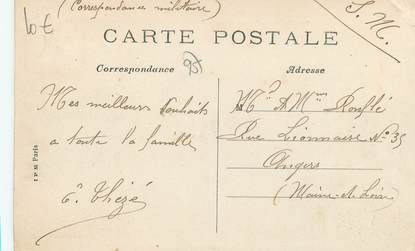 (Correspondance militaire)
S. M.
10 €
CARTE POSTALE
Correspondance
Adresse
Mes meilleurs Souhaits
a toute la famille
Mr & Mme
Rue Lionnaise No 35
Angers
(Maine-et-Loire)
I P M Paris